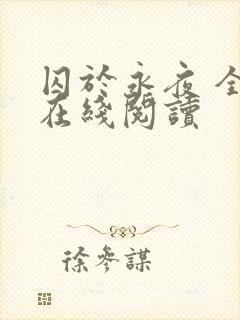 囚於永夜 全
在綫閱讀
徐參謀